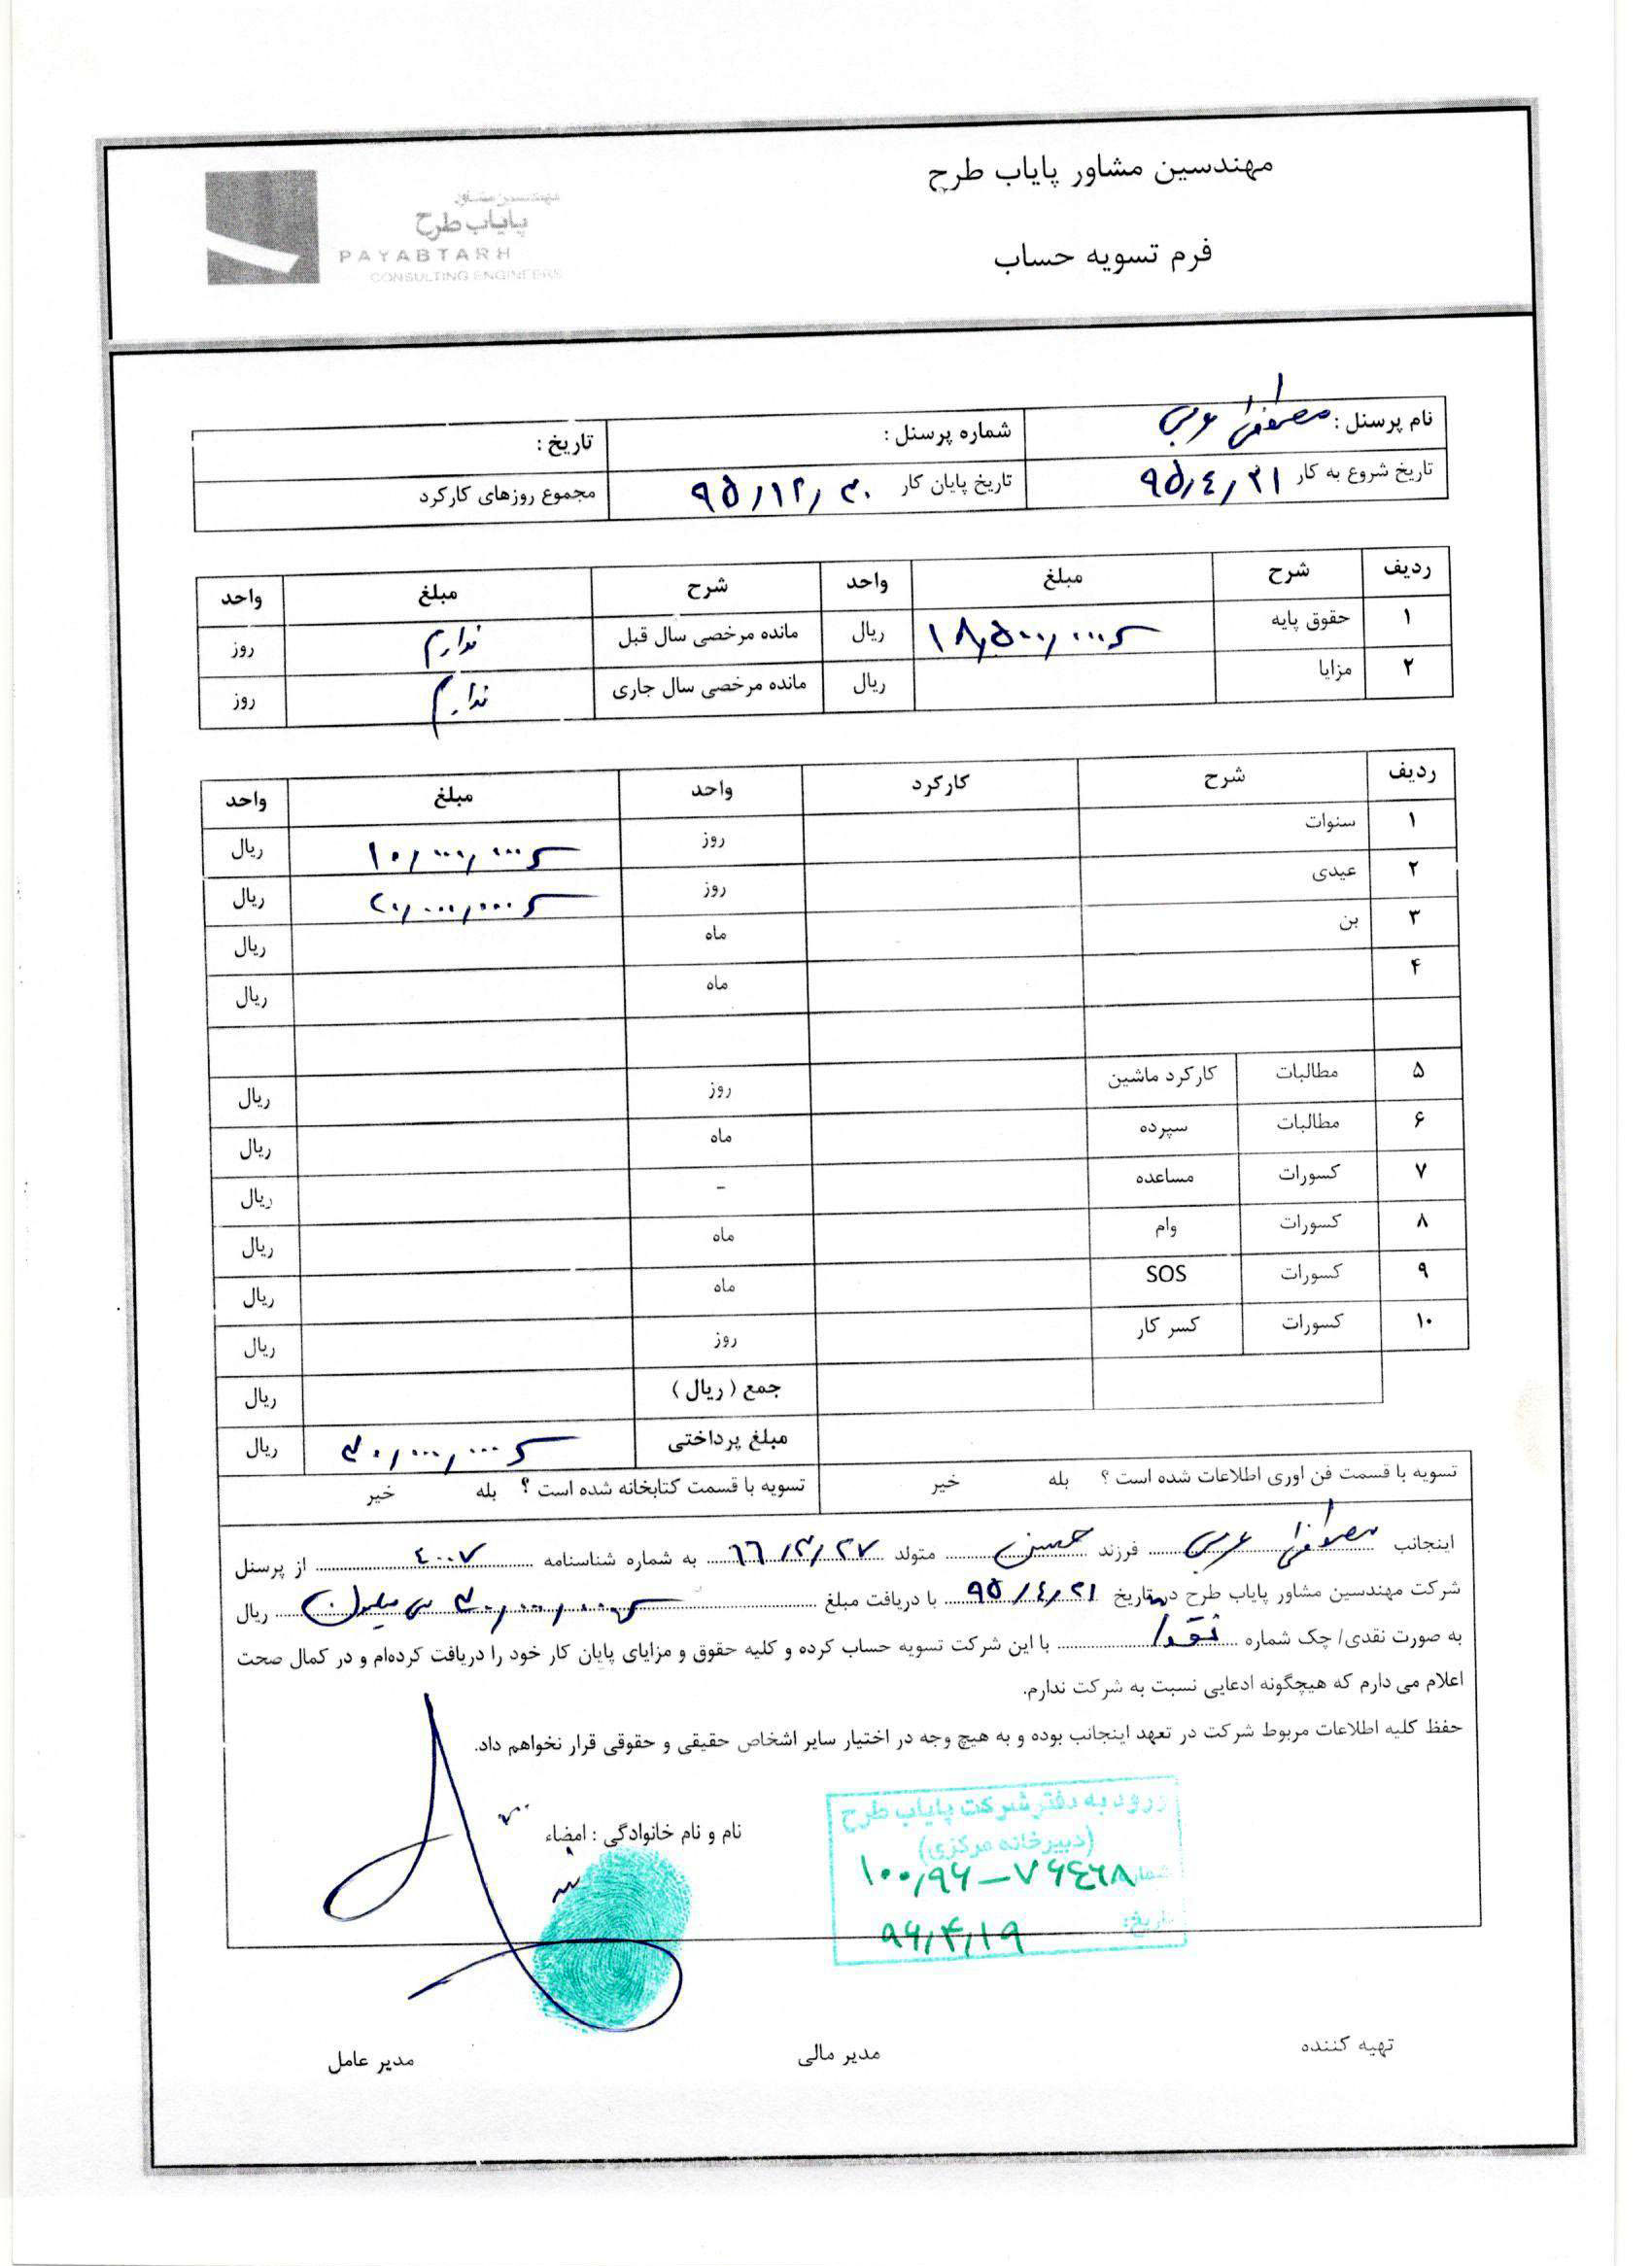 مهندسین مشاور پایاب طرح
فرم تسویه حساب
مهندسین مشاور
پایاب طرح
PAYABTARH
CONSULTING ENGINEERS
نام پرسنل : مصطفی عربی شماره پرسنل : تاریخ :
تاریخ شروع به کار ۹۵/۴/۲۱ تاریخ پایان کار ۹۵/۱۲/۳۰ مجموع روزهای کارکرد
ردیف شرح مبلغ واحد شرح مبلغ واحد
۱ حقوق پایه ۱۸,۵۰۰,۰۰۰ ریال مانده مرخصی سال قبل ندارم روز
۲ مزایا ریال مانده مرخصی سال جاری ندارم روز
ردیف شرح کارکرد واحد مبلغ واحد
۱ سنوات روز ۱۰,۰۰۰,۰۰۰ ریال
۲ عیدی روز ۲۰,۰۰۰,۰۰۰ ریال
۳ بن ماه ریال
۴ ماه ریال
۵ مطالبات کارکرد ماشین روز ریال
۶ مطالبات سپرده ماه ریال
۷ کسورات مساعده - ریال
۸ کسورات وام ماه ریال
۹ کسورات SOS ماه ریال
۱۰ کسورات کسر کار روز ریال
جمع ( ریال ) ریال
مبلغ پرداختی ۳۰,۰۰۰,۰۰۰ ریال
تسویه با قسمت فن اوری اطلاعات شده است ؟ بله خیر تسویه با قسمت کتابخانه شده است ؟ بله خیر
اینجانب مصطفی عربی فرزند حسن متولد ۶۶/۳/۲۷ به شماره شناسنامه ۴۰۰۷ از پرسنل
شرکت مهندسین مشاور پایاب طرح در تاریخ ۹۵/۴/۲۱ با دریافت مبلغ ۳۰,۰۰۰,۰۰۰ سی میلیون ریال
به صورت نقدی/ چک شماره نقدا با این شرکت تسویه حساب کرده و کلیه حقوق و مزایای پایان کار خود را دریافت کرده‌ام و در کمال صحت
اعلام می دارم که هیچگونه ادعایی نسبت به شرکت ندارم.
حفظ کلیه اطلاعات مربوط شرکت در تعهد اینجانب بوده و به هیچ وجه در اختیار سایر اشخاص حقیقی و حقوقی قرار نخواهم داد.
نام و نام خانوادگی : امضاء
ورود به دفتر شرکت پایاب طرح
(دبیرخانه مرکزی)
شماره ۱۰۰,۹۶-۷۶۴۶۸
تاریخ: ۹۶,۴,۱۹
تهیه کننده مدیر مالی مدیر عامل